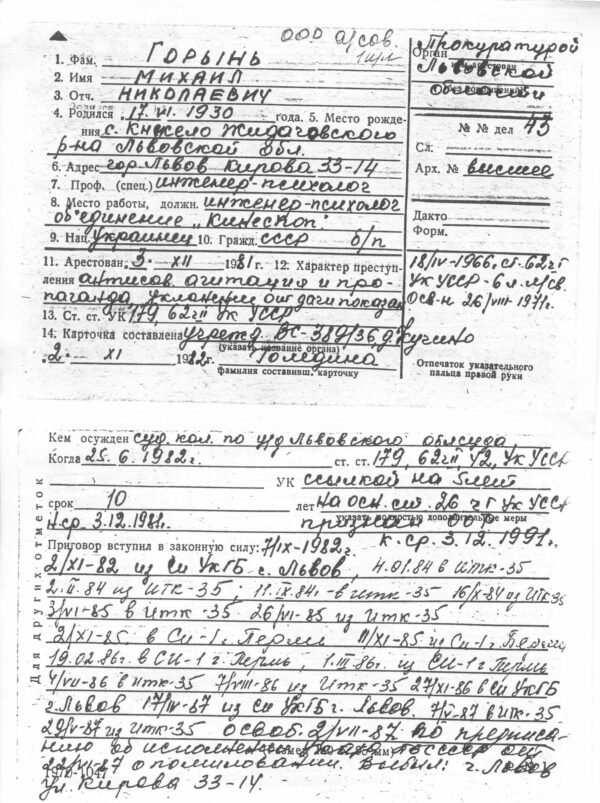 ООО а/сов.
1. Фам. Горынь
2. Имя Михаил
3. Отч. Николаевич
4. Родился 17.VI.1930 года. 5. Место рожде-
ния с. Кнжело Жидачовского
р-на Львовской обл.
6. Адрес гор. Львов Кирова 33-14
7. Проф. (спец.) инженер-психолог
8. Место работы, должн. инженер-психолог
об'единение „Кинескоп"
9. Нац. украинец 10. Гражд. СССР б/п
11. Арестован 3. XII 1981 г. 12. Характер преступ-
ления антисов. агитация и про-
паганда, уклонение от дачи показан
13. Ст. ст. УК 179, 62 ч II УК УССР
14. Карточка составлена учрежд. ВС-389/36, д. Кучино
(указать название органа)
"2" XI 1982 г.
фамилия составивш. карточку
Орган Прокуратурой
Львовской
области
№ № дел 43
Сл.
Арх. № высшее
Дакто
Форм.
18/IV-1966, ст. 62 ч I
УК УССР - 6 л. л/св.
Осв-н 26/VIII-1971г.
Отпечаток указательного
пальца правой руки
Кем осужден суд. кол. по у/д Львовского облсуда,
Когда 25.6.1982г. ст. ст. 179, 62 ч II, 42, УК УССР
УК ссылкой на 5 лет
срок 10 лет На осн. ст. 26 ч I УК УССР
указать полностью дополнительные меры
н.ср. 3.12.1981г. признан ООР
к. ср. 3.12.1991г.
Приговор вступил в законную силу: 7/IX-1982г.
Для других отметок
2/XI-82 из СИ УКГБ г. Львов, 4.01.84 в ИТК-35
2.II.84 из ИТК-35; 11.IX.84г. в ИТК-35 16/X-84 из ИТК 35
3/VI-85 в ИТК-35 26/VI-85 из ИТК-35
2/XI-85 в СИ-1 г. Перми 11/XI-85 из СИ-1 г. Перми
19.02.86г. в СИ-1 г. Пермь, 1.III.86г. из СИ-1 г. Пермь
4/VII-86 в ИТК-35 7/VIII-86 из ИТК-35 27/XI-86 в СИ УКГБ
г. Львов 17/IV-87 из СИ УКГБ г. Львов. 7/V-87 в ИТК-35
29/V-87 из ИТК-35 освоб. 2/VII-87 по предписа-
нию об исполнении от
22/VI-87 о помиловании. Выбыл: г. Львов
1970-1047
ул. Кирова 33-14.